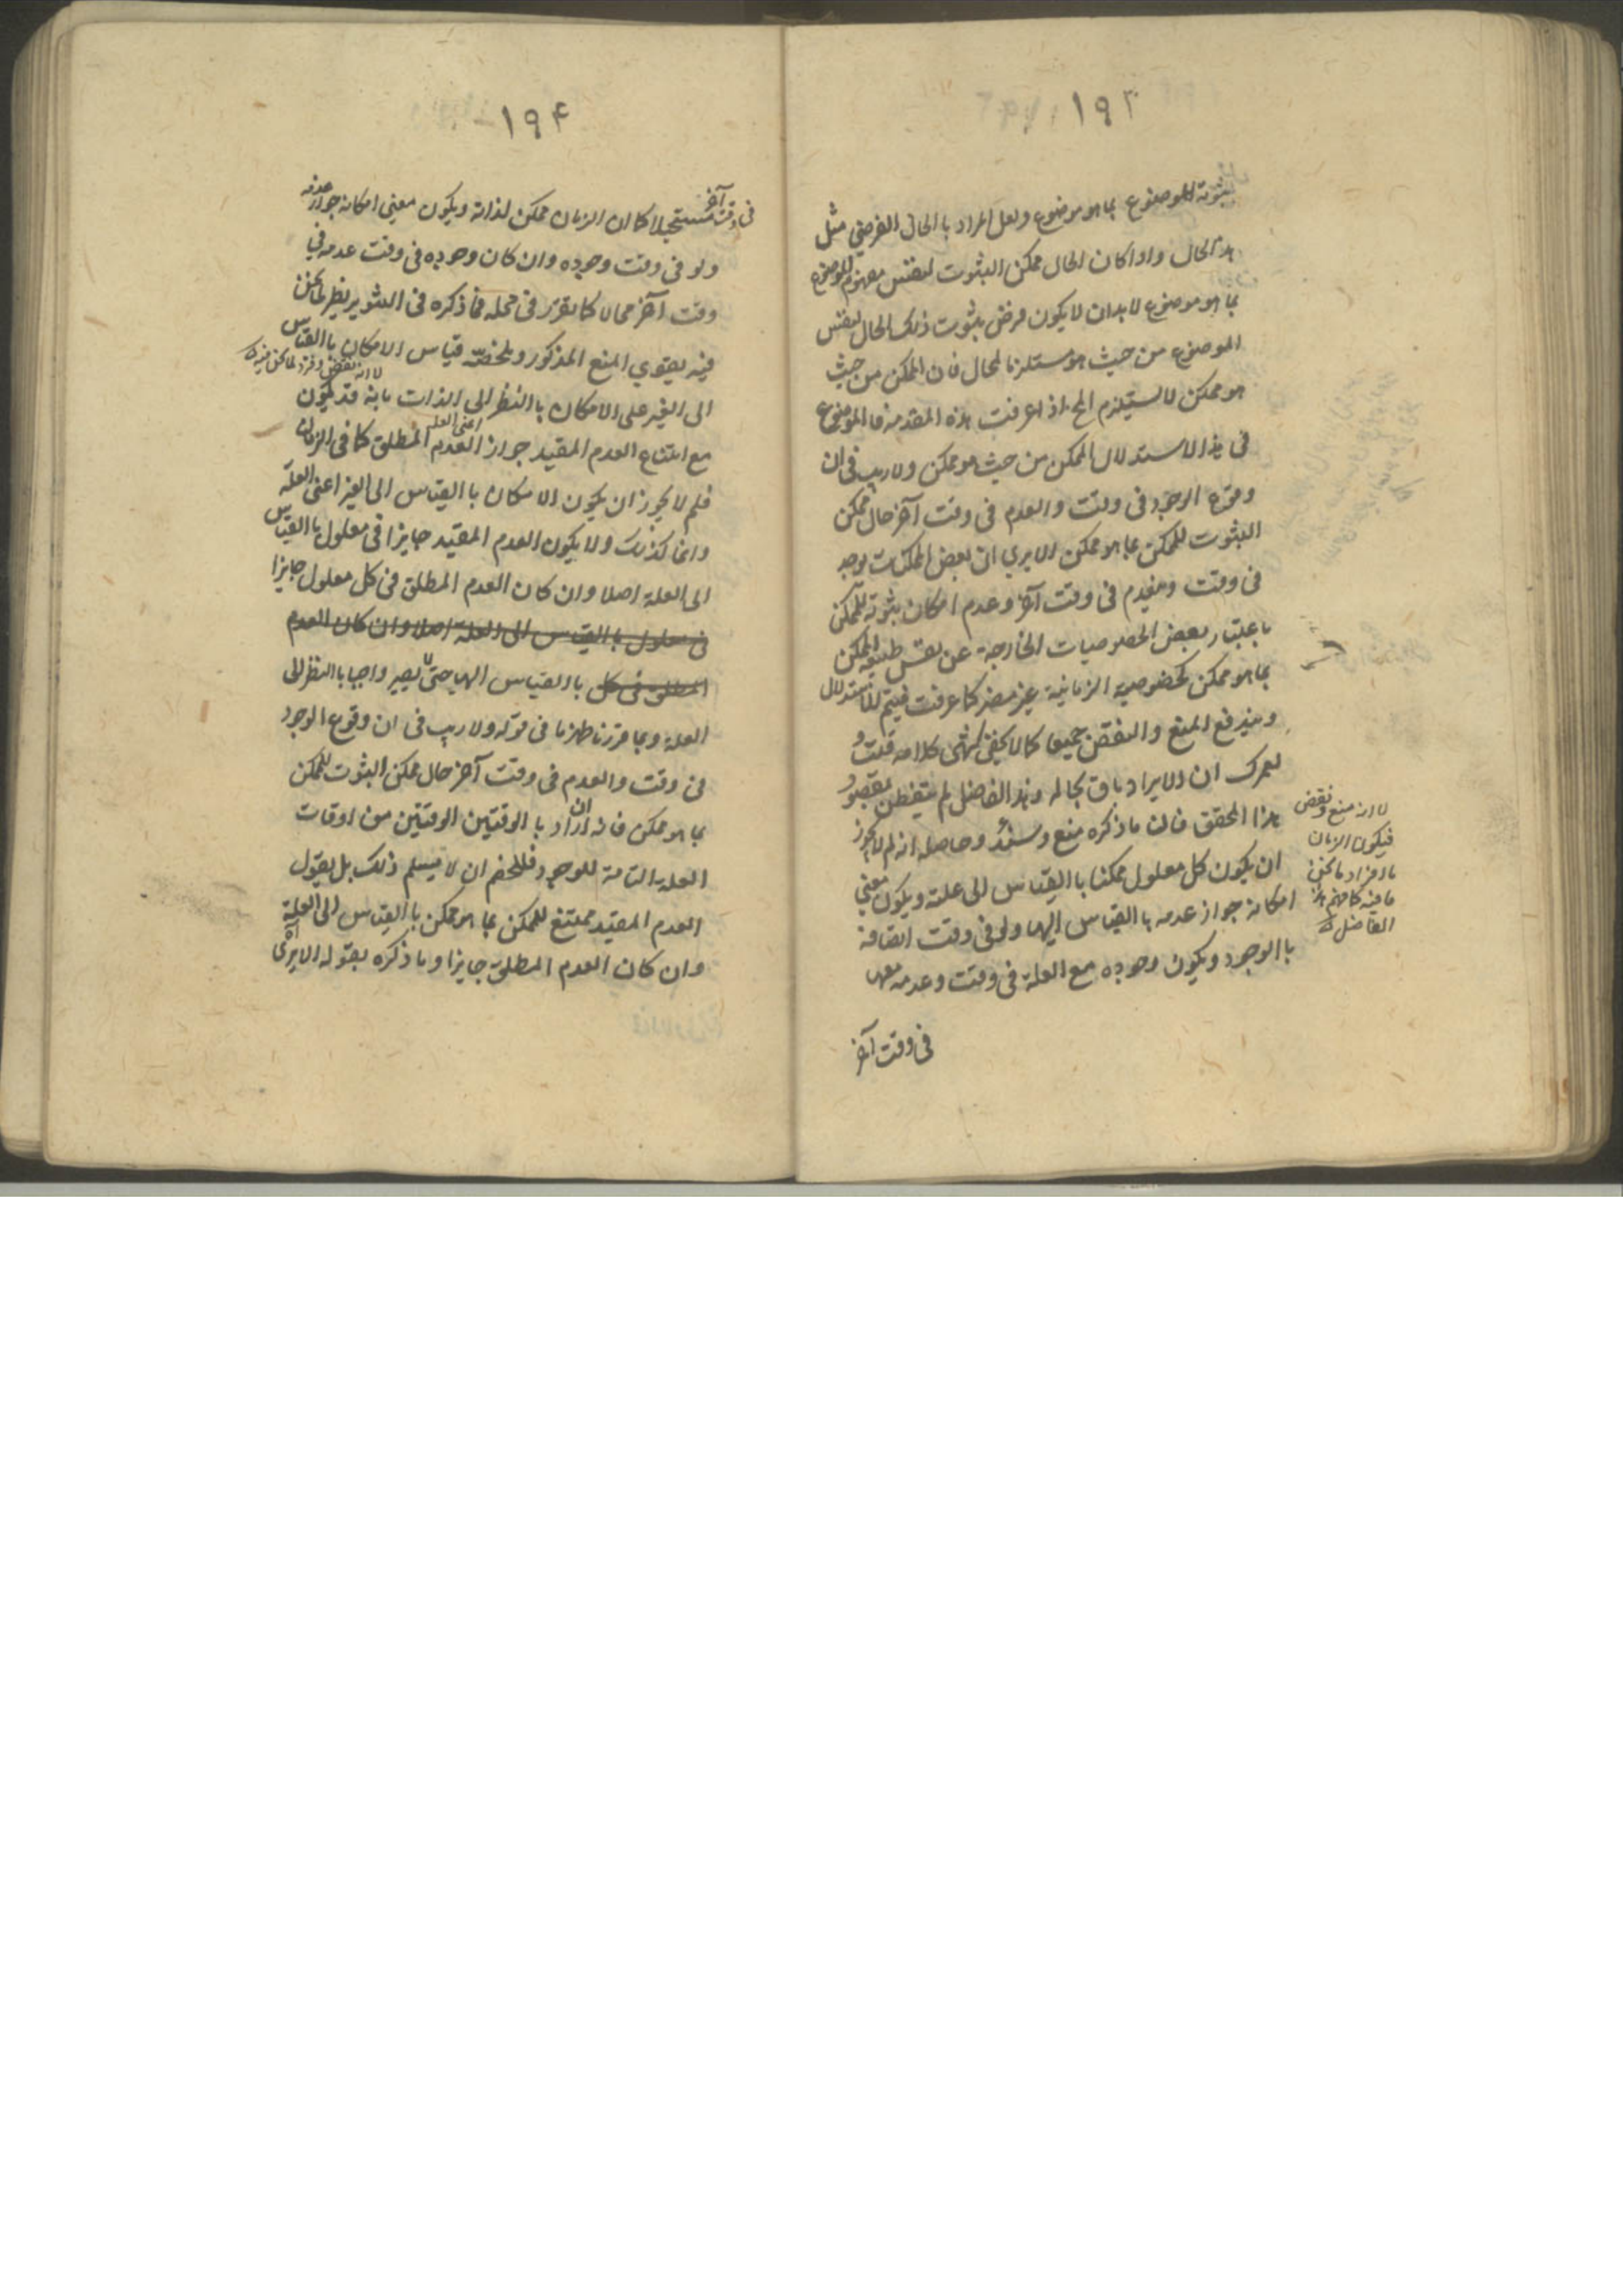 ١٩٣
ثبوته للموضوع بما هو موضوع ولعل المراد بالحال الفرضي مثل
هذا الحال واذا كان الحال ممكن الثبوت لنفس مفهوم الموضوع
بما هو موضوع لا بد ان لا يكون فرض ثبوت ذلك الحال لنفس
الموضوع من حيث هو مستلزما لمحال فان الممكن من حيث
هو ممكن لا يستلزم المح اذا عرفت هذه المقدمة فالموضوع
فى هذا الاستدلال الممكن من حيث هو ممكن ولا ريب فى ان
وقوع الوجود فى وقت والعدم فى وقت آخر حال ممكن
الثبوت للممكن بما هو ممكن الا يري ان بعض الممكنات يوجد
فى وقت وينعدم فى وقت آخر وعدم امكان ثبوته للممكن
باعتبار بعض الخصوصيات الخارجة عن نفس طبيعة الممكن
بما هو ممكن كخصوصية الزمانية غير مضر كما عرفت فيتم الاستدلال
ويندفع المنع والنقض جميعا كما لا يخفى انتهى كلامه قلت و
لعمرك ان الايراد باق بحاله وهذا الفاضل لم يتفطن بمقصود
هذا المحقق فان ما ذكره منع وسند وحاصله انه لم لا يجوز
ان يكون كل معلول ممكنا باالقياس الى علته ويكون معنى
امكانه جواز عدمه باالقياس اليها ولو فى وقت اتصافه
باالوجود ويكون وجوده مع العلة فى وقت وعدمه معها
فى وقت آخر
لا انه منع ونقض
فيكون الزمان
ما افراد ما نحن
ما فيه كما فهم هذا
الفاضل
١٩۴
فى وقت آخر مستحيلا كما ان الزمان ممكن لذاته ويكون معنى امكانه جواز عدمه
ولو فى وقت وجوده وان كان وجوده فى وقت عدمه فى
وقت آخر محالا كما تقرر فى محله فما ذكره فى التنوير نظير لما نحن
فيه يقوي المنع المذكور وملخصه قياس الامكان باالقياس
لا انه نقض وفرد لما نحن فيه
الى الغير على الامكان باالنظر الى الذات بانه قد يكون
مع امتناع العدم المقيد جواز العدم المطلق كما فى الزمان
اعنى العلة
فلم لا يجوز ان يكون الامكان باالقياس الى الغير اعنى العلة
وانما كذلك ولا يكون العدم المقيد جايزا فى معلول باالقياس
الى العلة اصلا وان كان العدم المطلق فى كل معلول جايزا
فى معلول باالقياس الى العلة اصلا وان كان العدم
المطلق فى كل باالقياس اليها حتى لا يصير واجبا باالنظر الى
العلة وبما قررنا ظهر ما فى قوله ولا ريب فى ان وقوع الوجود
فى وقت والعدم فى وقت آخر حال ممكن الثبوت للممكن
بما هو ممكن فانه ان اراد باالوقتين الوقتين من اوقات
العلة التامة للوجود فللخصم ان لا يسلم ذلك بل يقول
العدم المقيد ممتنع للممكن بما هو ممكن باالقياس الى العلة
وان كان العدم المطلق جايزا وما ذكره بقوله الا يرى آه